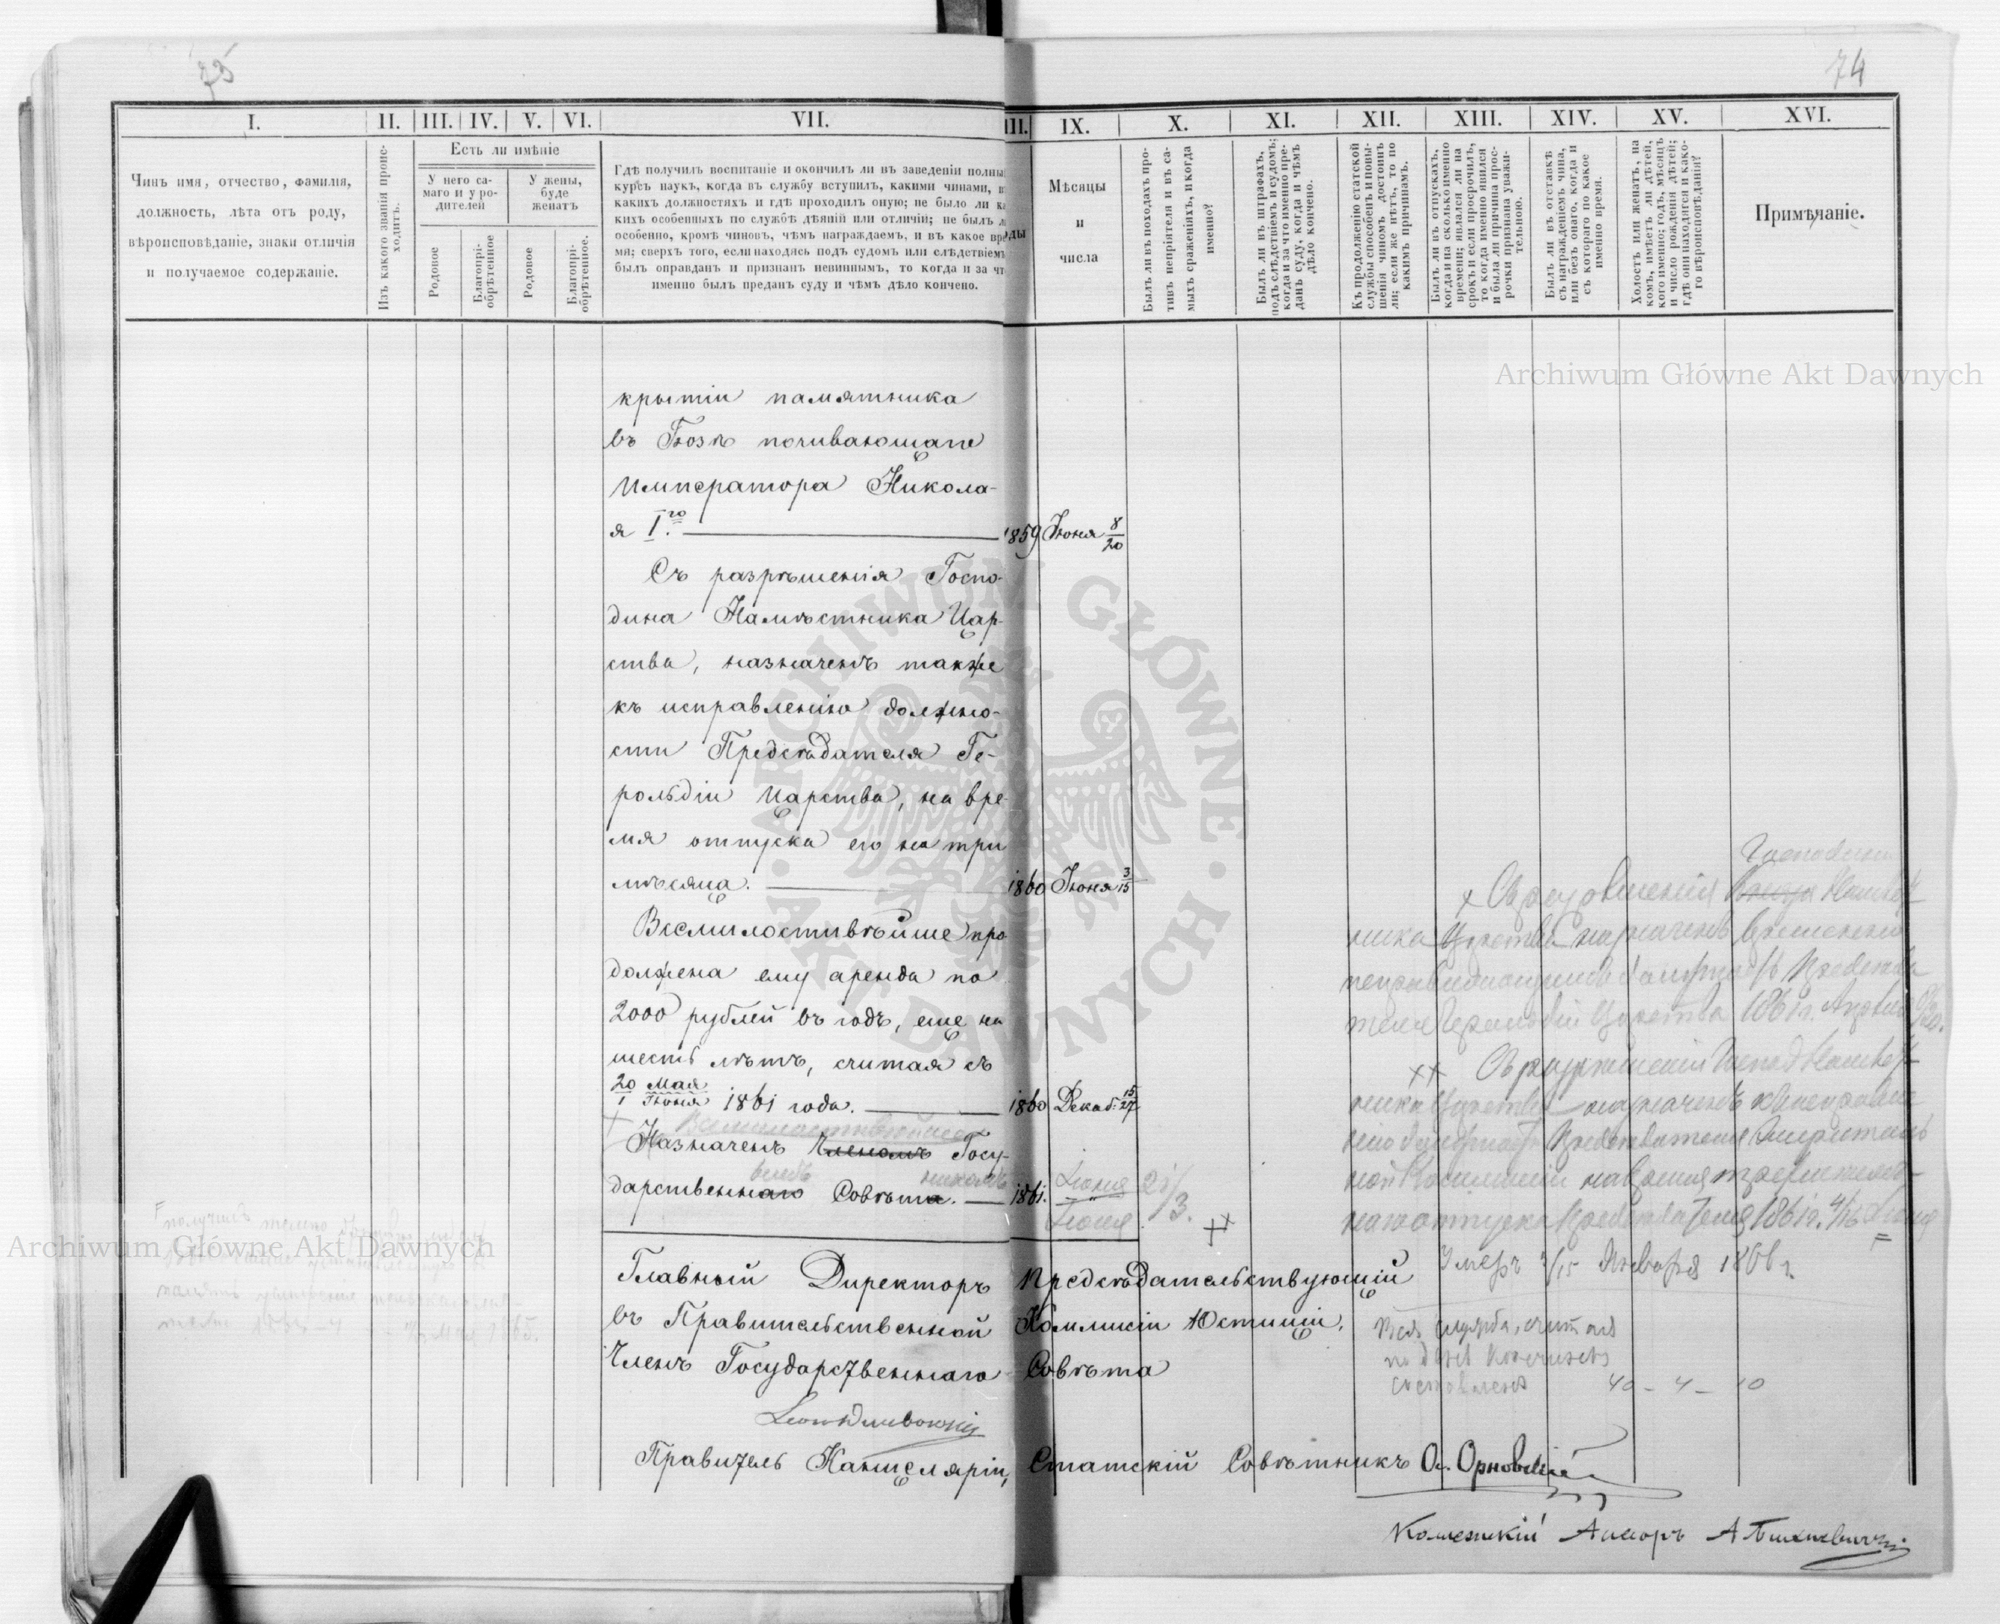 75
74
I.
II.
III.
IV.
V.
VI.
VII.
III.
IX.
X.
XI.
XII.
XIII.
XIV.
XV.
XVI.
Чинъ имя, отчество, фамилія,
должность, лѣта отъ роду,
вѣроисповѣданіе, знаки отличія
и получаемое содержаніе.
Изъ какого званія проис-
ходитъ.
Есть ли имѣніе
У него са-
маго и у ро-
дителей
У жены,
буде
женатъ
Родовое
Благопрі-
обрѣтенное
Родовое
Благопрі-
обрѣтенное.
Гдѣ получилъ воспитаніе и окончилъ ли въ заведеніи полны
курсъ наукъ, когда въ службу вступилъ, какими чинами, в
какихъ должностяхъ и гдѣ проходилъ оную; не было ли ка
кихъ особенныхъ по службѣ дѣяній или отличій; не былъ л
особенно, кромѣ чиновъ, чѣмъ награждаемъ, и въ какое вре
мя; сверхъ того, если находясь подъ судомъ или слѣдствіемъ
былъ оправданъ и признанъ невиннымъ, то когда и за чт
именно былъ преданъ суду и чѣмъ дѣло кончено.
ды
Мѣсяцы
и
числа
Былъ ли въ походахъ про-
тивъ непріятеля и въ са-
мыхъ сраженіяхъ, и когда
именно?
Былъ ли въ штрафахъ,
подъ слѣдствіемъ и судомъ;
когда и за что именно пре-
данъ суду, когда и чѣмъ
дѣло кончено.
Къ продолженію статской
службы способенъ и повы-
шенія чиномъ достоинъ
ли; если же нѣтъ, то по
какимъ причинамъ.
Былъ ли въ отпускахъ,
когда и на сколько именно
времени; являлся ли на
срокъ и если просрочилъ,
то когда именно явился
и была ли причина прос-
рочки признана уважи-
тельною.
Былъ ли въ отставкѣ
съ награжденіемъ чина,
или безъ онаго, когда и
съ котораго по какое
именно время.
Холостъ или женатъ, на
комъ, имѣетъ ли дѣтей,
кого именно; годъ, мѣсяцъ
и число рожденія дѣтей;
гдѣ они находятся и како-
го вѣроисповѣданія?
Примѣчаніе.
крытіи памятника
въ Бозѣ почивающаго
Императора Никола-
я I.го 1859 Іюня 8/20
Съ разрѣшенія Госпо-
дина Намѣстника Цар-
ства, назначенъ также
къ исправленію должно-
сти Предсѣдателя Ге-
рольдіи Царства, на вре-
мя отпуска его на три
мѣсяца. 1860 Іюня 3/15
Всемилостивѣйше про
должена ему аренда по
2000 рублей въ годъ, еще на
шесть лѣтъ, считая съ
20 Мая/1 Іюня 1861 года. 1860 Декаб. 15/27
Всемилостивѣйше
Назначенъ Членомъ Госу-
дарственнаго Совѣта. 1861. Іюня/Іюля 21/3.
× Съ разрѣшенія Господина Намѣст-
ника Царства назначенъ временно
исправляющимъ должность Предсѣда
теля Герольдіи Царства 1861г. Апрѣля
×× Съ разрѣшенія Господ. Намѣст-
ника Царства назначенъ къ исправле-
нію должности Предсѣдателя
ной Коммиссіи на время
наго отпуска Предсѣдателя 1861г. 4/16
Умеръ 3/15 Января 1866 г.
Вся служба, считая
по день кончины
составляетъ 40 - 4 - 10
Главный Директоръ Предсѣдательствующій
въ Правительственной Коммисіи Юстиціи,
Членъ Государственнаго Совѣта
Правитель Канцеляріи, Статскій Совѣтникъ О. Орновскій
Коллежскій Ассесоръ А
Archiwum Główne Akt Dawnych
Archiwum Główne Akt Dawnych
ARCHIWUM GŁÓWNE · AKT DAWNYCH ·